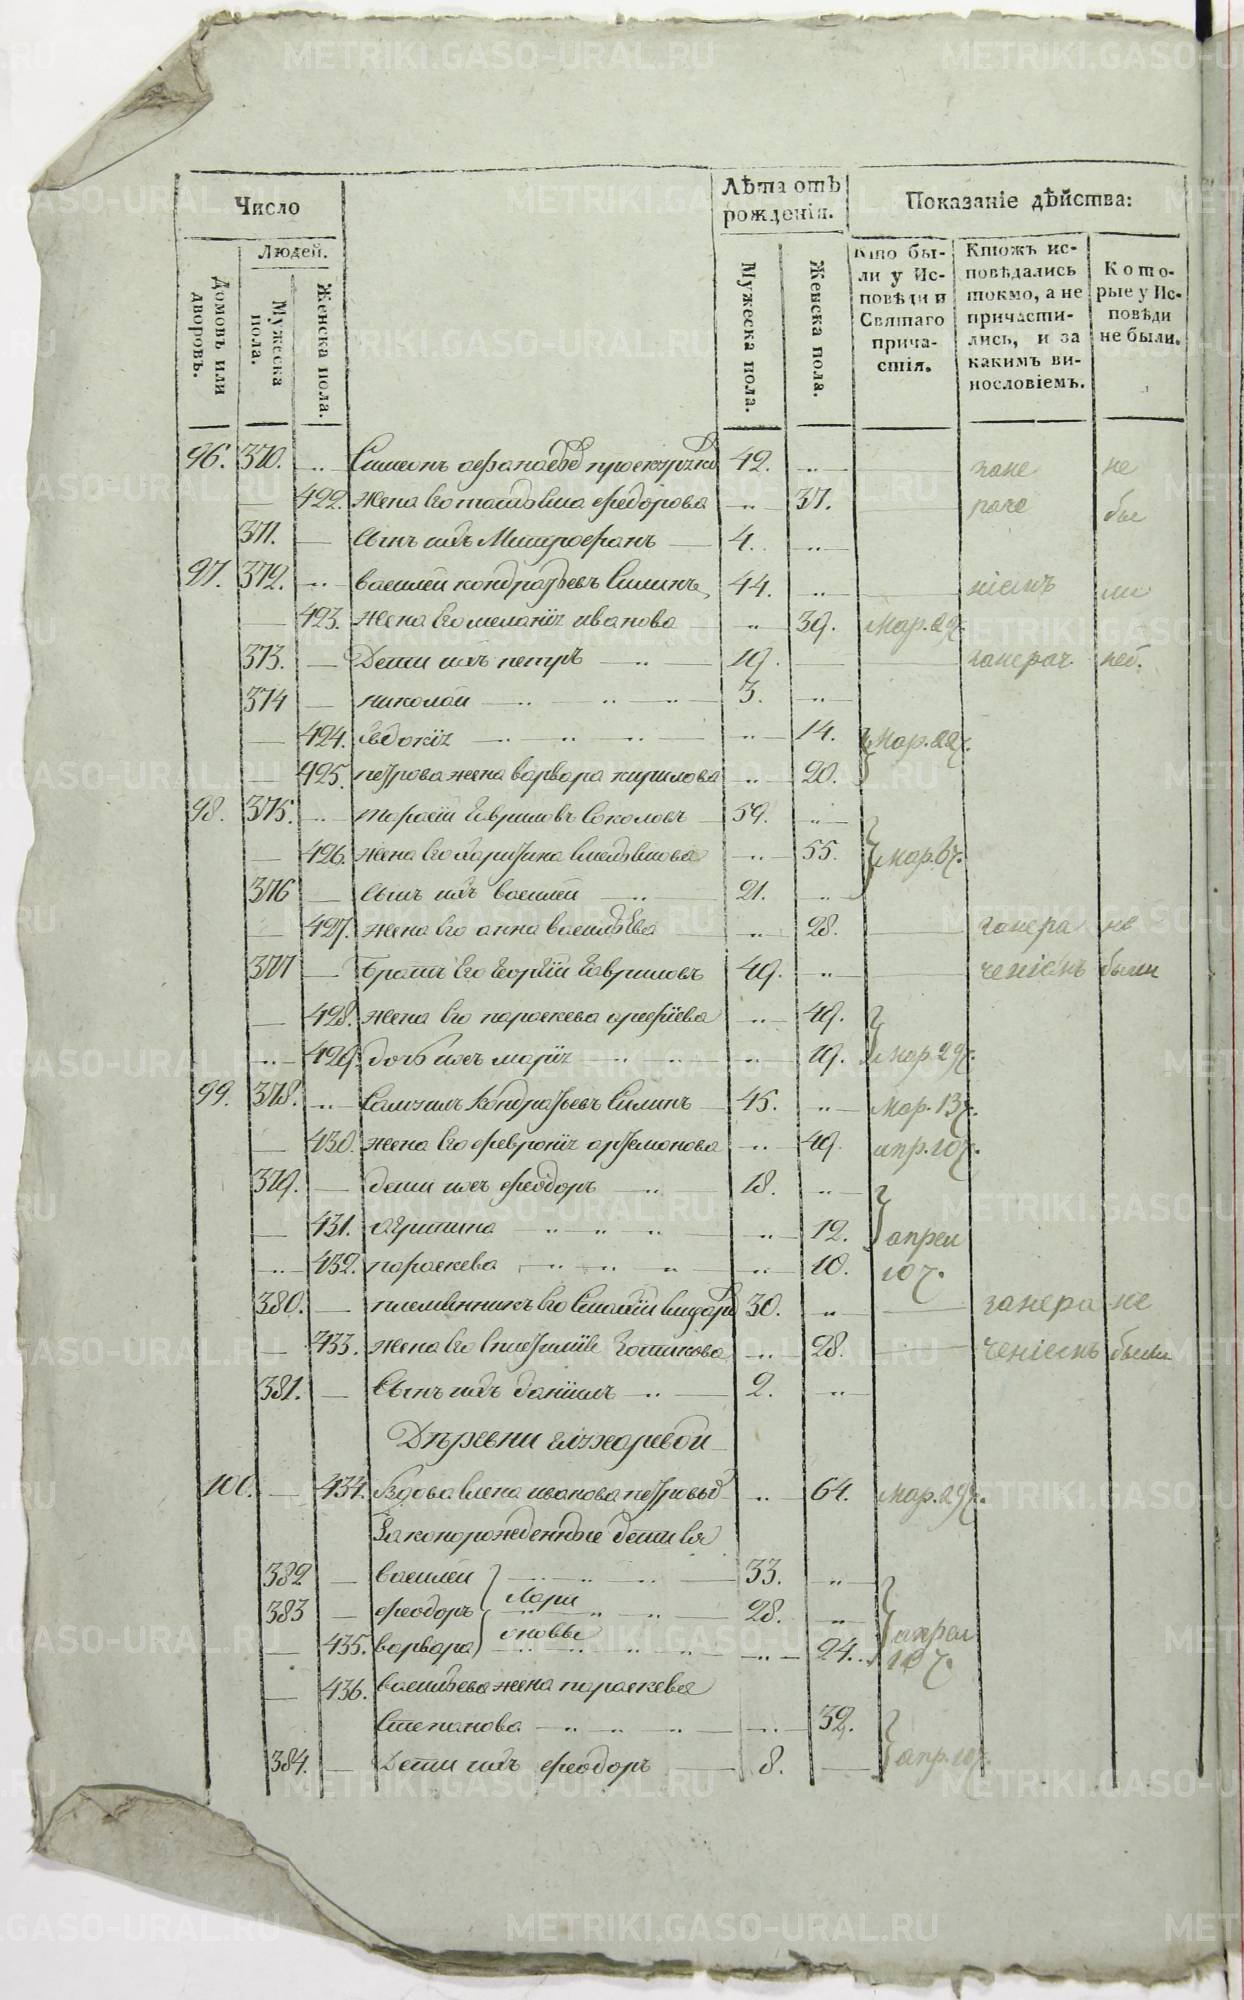 Число
Людей.
Домовъ или дворовъ.
Мужеска пола.
Женска пола.
Лѣта отъ рожденія.
Мужеска пола.
Женска пола.
Показаніе дѣйства:
Кто бы-
ли у Ис-
повѣди и
Святаго
прича-
стія.
Ктожъ ис-
повѣдались
токмо, а не
причасти-
лись, и за
какимъ ви-
нословіемъ.
Кото-
рые у Ис-
повѣди
не были.
96. 370. Симеонъ 42. не
422. жена его Федорова 37. бы
371. сынъ ихъ Митрофанъ 4.
97. 372. василей кондратьевъ Силинъ 44. ли
423. жена его меланія иванова 39. Мар. 29.
373. Дети ихъ петръ 19.
374 николай 3.
424. Евдокія 14. Мар. 22.
425. петрова жена варвара кирилова 20.
98. 375. тарасій Гавриловъ Соколовъ 59.
426. жена его 55. мар. 6 ч.
376 сынъ ихъ василей 21.
427. жена его анна васильева 28. за нера не
377 Братъ его Георгій Гавриловъ 49. ченіемъ были
428. жена его параскева 49.
429. дочь ихъ марія 19. мар. 29 ч.
99. 378. Самуилъ Кондратьевъ Силинъ 45. Мар. 13 ч.
430. жена его февронія артемонова 49. апр. 10 ч.
379. дети ихъ феодоръ 18.
431. агрипина 12. апрел
432. параскева 10. 10 ч.
380. племянникъ его 30. за нера не
433. жена его 28. ченіемъ были
381. Сынъ ихъ даніилъ 2.
Дѣревни
100. 434. Вдова елена иванова 64. Мар. 29 ч.
Законорожденные дети ея
382 василей 33.
383 феодоръ Лари 28.
435. варвара оновы 24. апрел 10 ч.
436. васильева жена параскева
Степанова 32.
384. Дети ихъ феодоръ 8. апр. 10 ч.